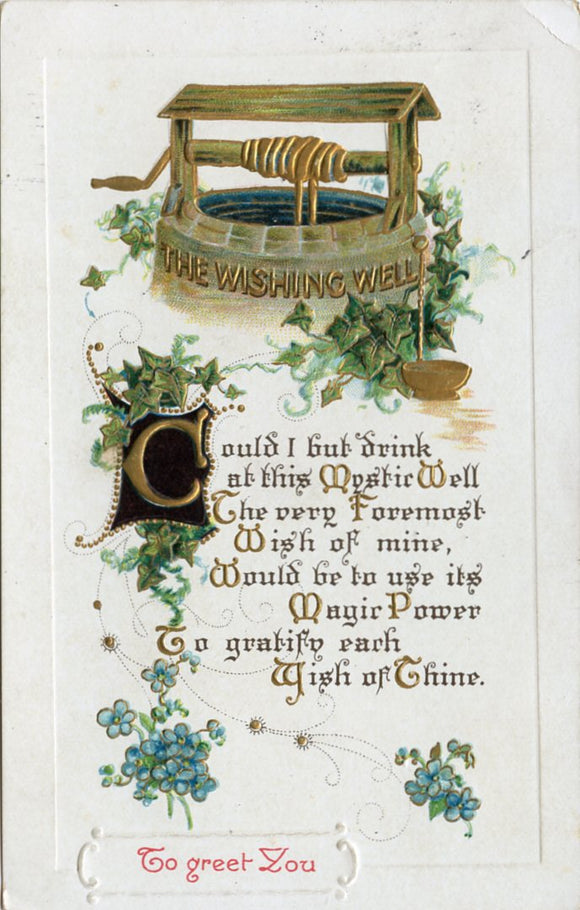 THE WISHING WELL
Could I but drink
at this Mystic Well
The very Foremost
Wish of mine,
Would be to use its
Magic Power
To gratify each
Wish of Thine.
To greet You